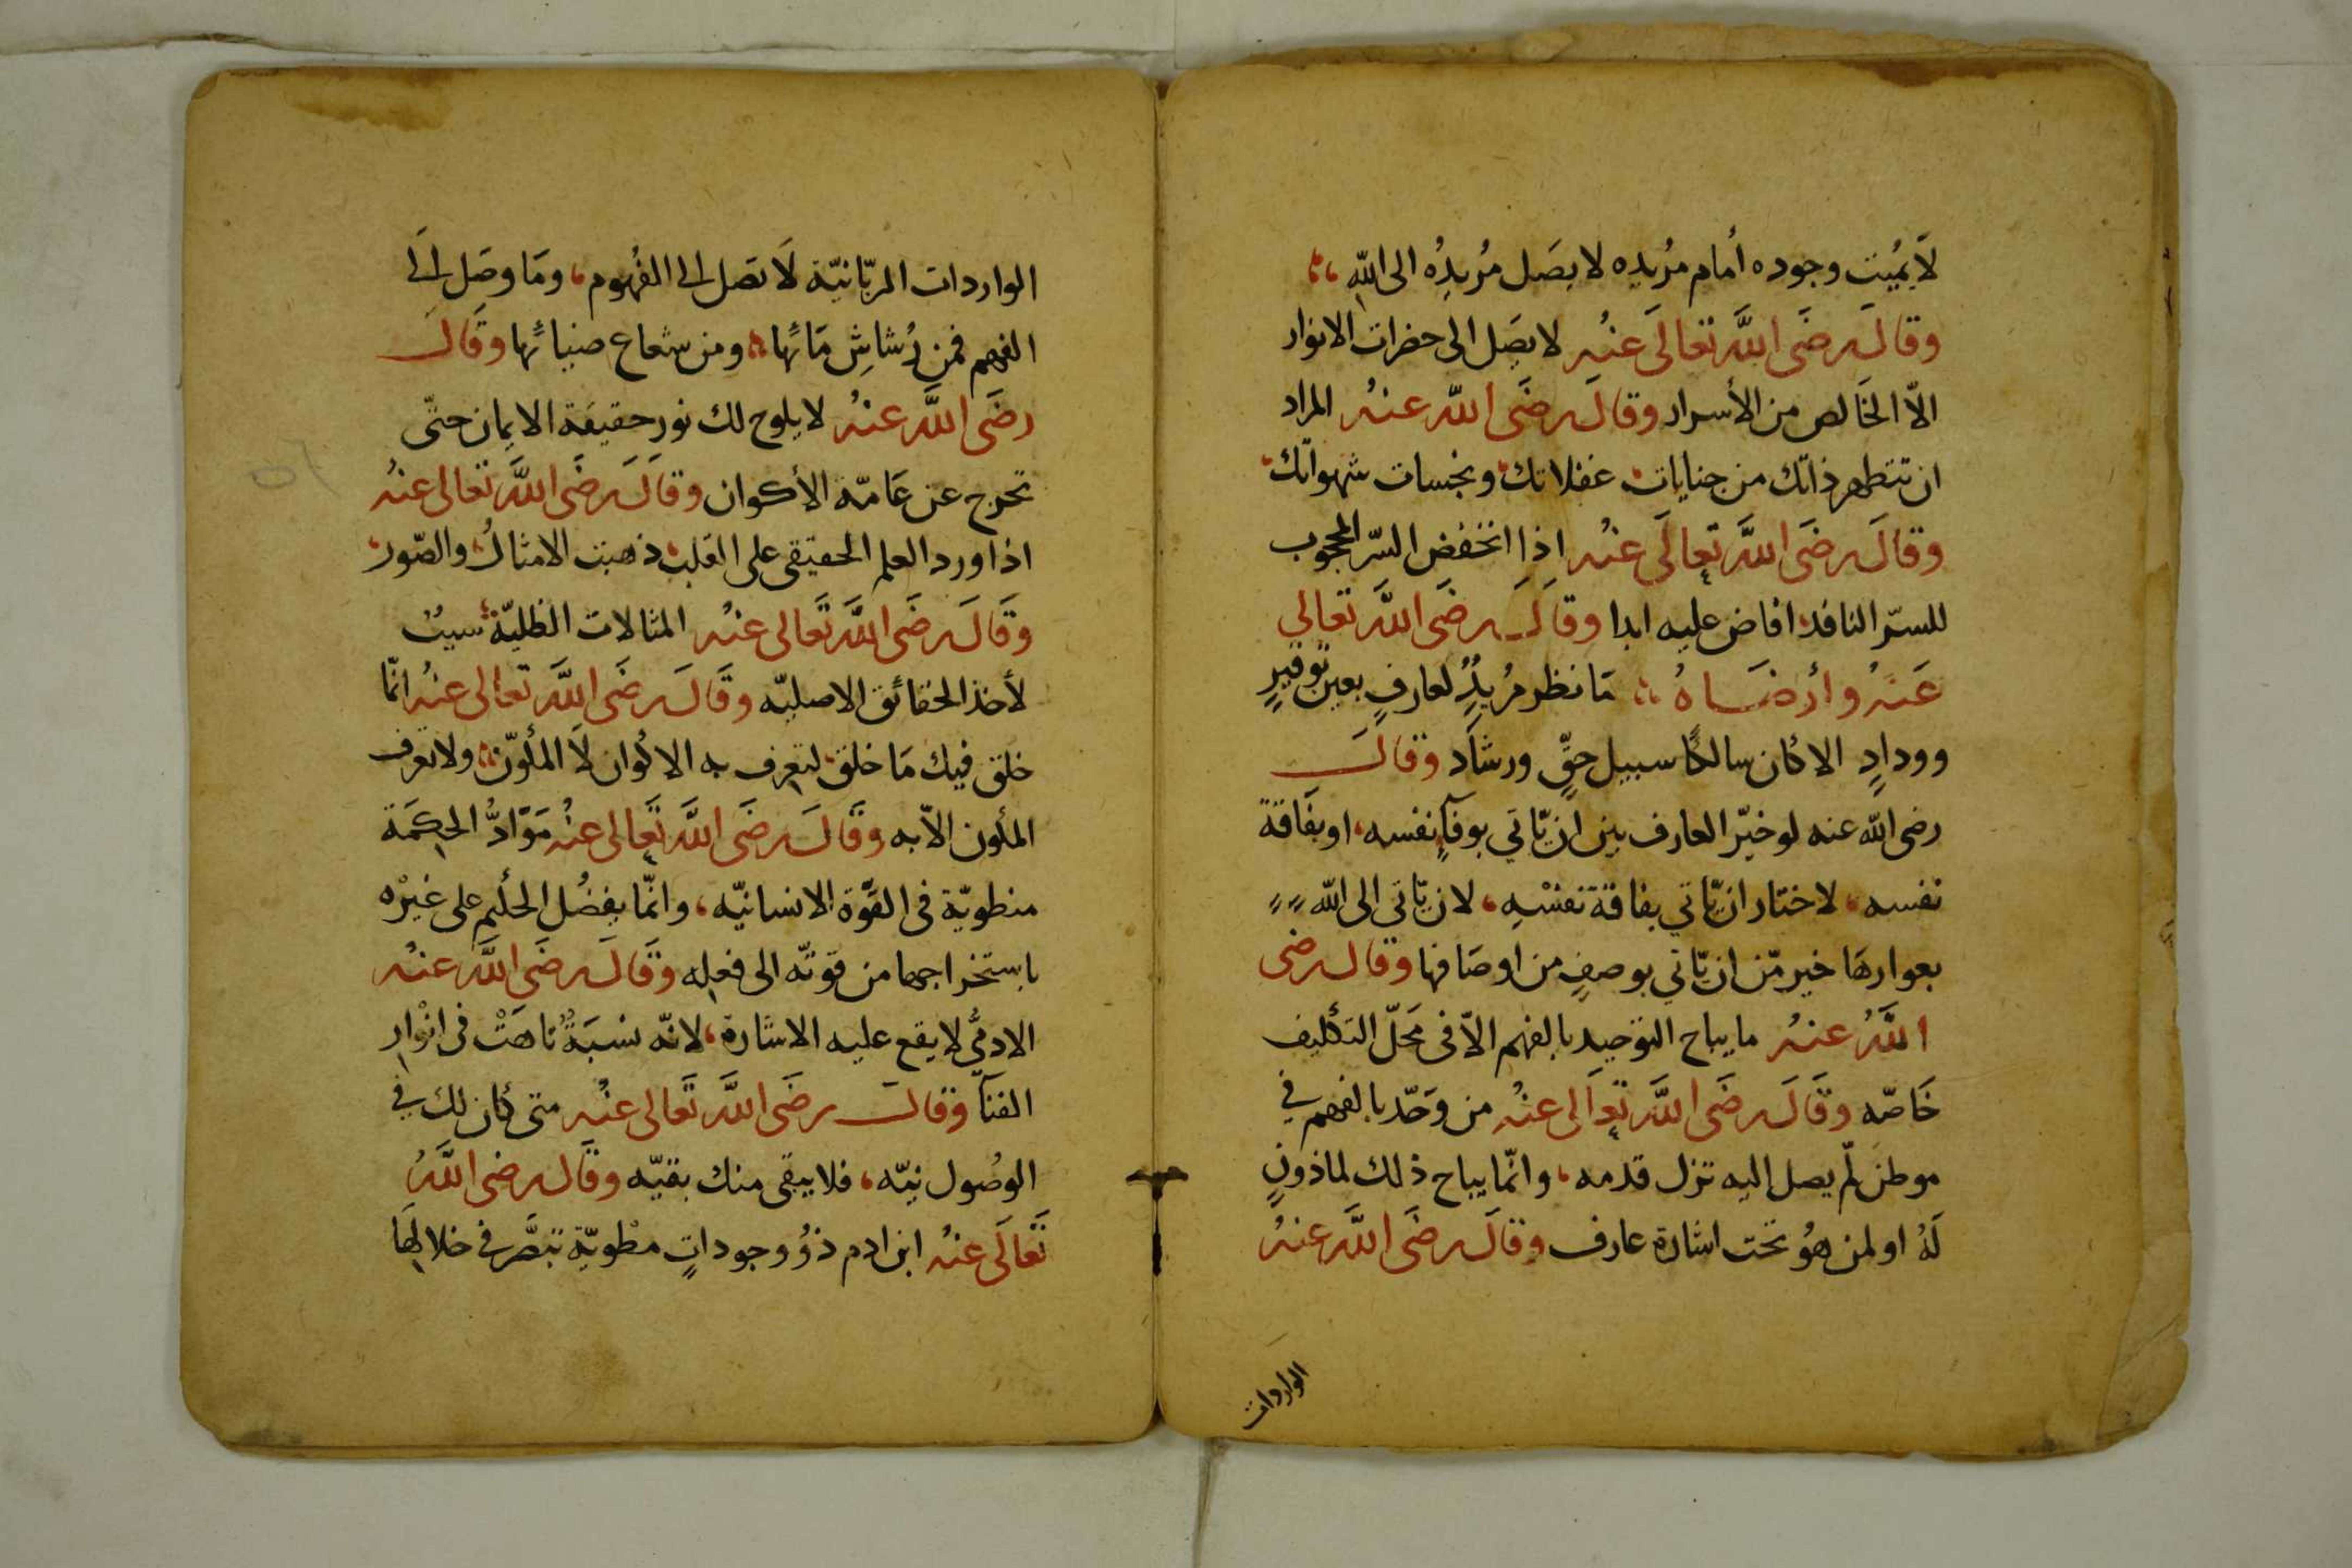 لَا يُمِيت وجوده أمام مُريده لا يصَل مُريدُه الى اللّٰه
وقالَ رضَى اللَّه تعالَى عنْه لا يصَل الى حضرات الانوار
الاّ الخَالص من الأسرار وقالَ رضَى اللّه عنهُ المراد
ان تتطهر ذاتك من جنايات غفلاتك ونجسات شهواتك
وقالَ رضَى اللَّه تعالَى عنْه اذا انخفض السّر المحجوب
للسّر النافذ افاض عليه ابدا وقالَ رضَى اللَّه تعالي
عَنهُ وأرضَاهُ مَا نظر مُريدٌ لعارفٍ بعين توقيرٍ
وودادٍ الا كان سالكًا سبيل حقٍّ ورشاد وقالَ
رضى اللّه عنه لو خيّر العارف بين ان يّاتي بوفآءِ نفسه او بفَاقة
نفسه لاختار ان يّاتي بفاقة نفسْهِ لان يّاتى الى اللّه
بعوارهَا خير مّن ان يّاتي بوصفٍ من اوصَافها وقال رضى
اللَّهُ عنهُ ما يباح التوحيد بالفهم الاّ فى مَحَلّ التكليف
خَاصّه وقَالَ رضَى اللَّه تعالى عنْهُ من وَحّد بالفهم في
موطن لّم يصل اليه تزل قدمه وانّما يباح ذلك لماذونٍ
لَهُ او لمن هُو تحت اشارة عارف وقالَ رضَى اللَّه عنهُ
الواردات
الواردات الربّانيّة لَا تصل الى الفُهُوم ومَا وصَل الَى
الفهم فمن رُشاشِ مَائها ومن شعاع ضيائها وقَالَ
رضَى اللَّه عنهُ لا يلوح لك نور حقيقة الايمان حتّى
تخرج عن عَامّة الأكوان وقالَ رضَى اللَّه تعالى عنهُ
اذا ورد العلم الحقيقى على القلب ذهبت الامثالُ والصّور
وقَالَ رضَى اللَّه تَعالى عنْه المثالات الظليّة سيبٌ
لأخذ الحقائق الاصليّه وقَالَ رضَى اللَّه تعالى عنهُ انمّا
خلق فيك مَا خلق لتعرف به الاكوان لَا المكوّن ولا تعرف
المكون الاّ به وقَالَ رضَى اللَّه تَعالى عنْهُ مَوَادُّ الحِكمَة
منطويّة فى القوَّة الانسانيّه وانمّا يفضُل الحكيم على غيرْه
باستخراجها من قوتّه الى فعله وقَالَ رضَى اللَّه عنهُ
الادمىُّ لا يقع عليه الاشارة لانّه نسبَةٌ تاهَتْ فى انوْار
الفنآ وقالَ رضَى اللَّه تَعالى عنْه متى كان لك في
الوصُول نيّه فلا يبقى منك بقيّه وقَال رضى اللَّهُ
تَعَالَى عنهُ ابن ادم ذوُ وجوداتٍ مطويّة تبصَّر فى خلالِهَا